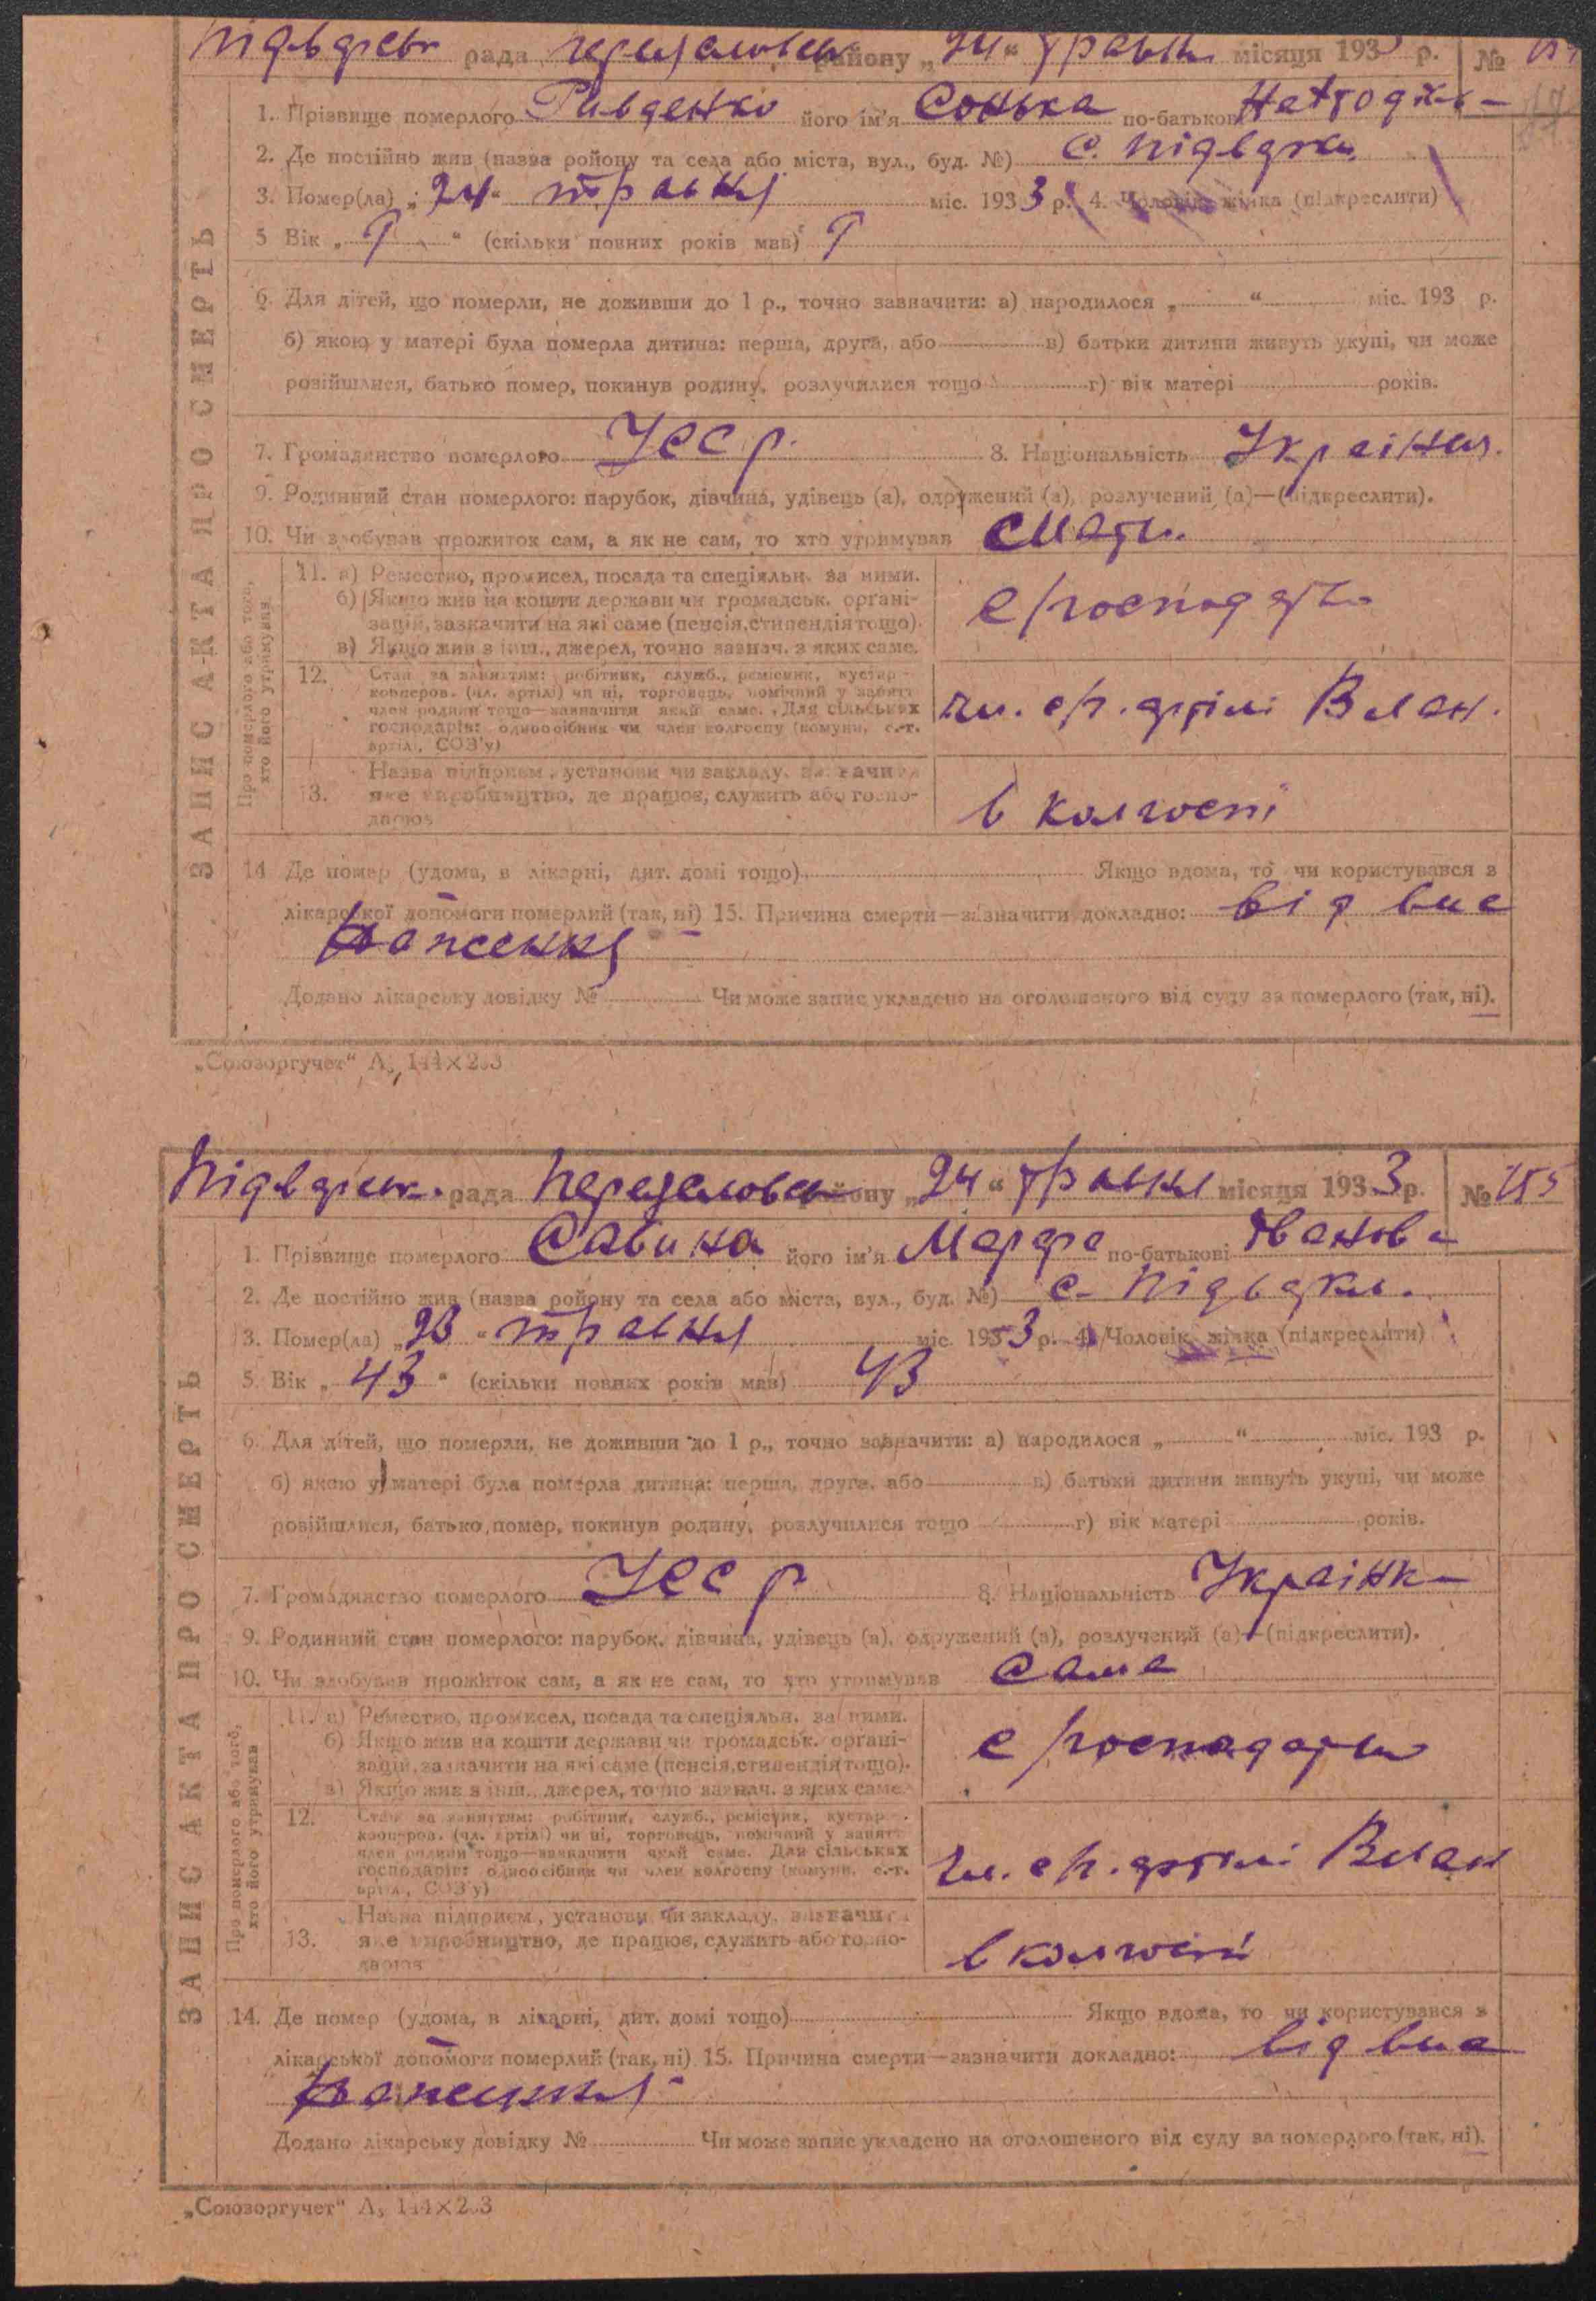 рада района „24“ травня місяця 193 р. №
1. Прізвище померлого його ім'я Сонька по-батькові
2. Де постійно жив (назва району та села або міста, вул., буд. №) с. Підвдки
3. Помер(ла) „24“ травня міс. 1933 р. 4. Чоловік, жінка (підкреслити)
5 Вік „ “ (скільки повних років мав)
6. Для дітей, що померли, не доживши до 1 р., точно зазначити: а) народилося „ “ міс. 193 р.
б) якою у матері була померла дитина: перша, друга, або в) батьки дитини живуть укупі, чи може
розійшлися, батько помер, покинув родину, розлучилися тощо г) вік матері років.
7. Громадянство померлого УССР 8. Національність
9. Родинний стан померлого: парубок, дівчина, удівець (а), одружений (а), розлучений (а)—(підкреслити).
10. Чи здобував прожиток сам, а як не сам, то хто утримував
ЗАПИС АКТА ПРО СМЕРТЬ
Про померлого або того, хто його утримував
11. а) Ремество, промисел, посада та спеціяльн. за ними.
б) Якщо жив на кошти держави чи громадськ. органі-
зацій, зазначити на які саме (пенсія, стипендія тощо).
в) Якщо жив з інш., джерел, точно зазнач. з яких саме.
12. Стан за заняттям: робітник, служб., ремісник, кустар-
коопров. (чл. артілі) чи ні, торговець, помічний у занятт
член родини тощо—зазначити який саме. Для сільських
господарів: одноосібник чи член колгоспу (комуни, с.-г.
артілі, СОЗ'у)
13. Назва підприєм., установи чи закладу, зазначити
яке виробництво, де працює, служить або госпо-
дарює
в колгоспі
14 Де помер (удома, в лікарні, дит. домі тощо) Якщо вдома, то чи користувався з
лікарської допомоги померлий (так, ні) 15. Причина смерти—зазначити докладно: від вис
наження
Додано лікарську довідку № Чи може запис укладено на оголошеного від суду за померлого (так, ні).
„Союзоргучет“ 144×203
рада района „24“ травня місяця 1933 р. №
1. Прізвище померлого Савина його ім'я Марфа по-батькові Іванов
2. Де постійно жив (назва району та села або міста, вул., буд. №) с. Підвдки.
3. Помер(ла) „23“ травня міс. 1933 р. 4. Чоловік, жінка (підкреслити)
5. Вік „43“ (скільки повних років мав) 43
6. Для дітей, що померли, не доживши до 1 р., точно зазначити: а) народилося „ “ міс. 193 р.
б) якою у матері була померла дитина: перша, друга, або в) батьки дитини живуть укупі, чи може
розійшлися, батько помер, покинув родину, розлучилися тощо г) вік матері років.
7. Громадянство померлого УССР 8. Національність Українк
9. Родинний стан померлого: парубок, дівчина, удівець (а), одружений (а), розлучений (а)—(підкреслити).
10. Чи здобував прожиток сам, а як не сам, то хто утримував сама
ЗАПИС АКТА ПРО СМЕРТЬ
Про померлого або того, хто його утримував
11. а) Ремество, промисел, посада та спеціяльн. за ними.
б) Якщо жив на кошти держави чи громадськ. органі-
зацій, зазначити на які саме (пенсія, стипендія тощо).
в) Якщо жив з інш., джерел, точно зазнач. з яких саме.
12. Стан за заняттям: робітник, служб., ремісник, кустар-
коопров. (чл. артілі) чи ні, торговець, помічний у занятт
член родини тощо—зазначити який саме. Для сільських
господарів: одноосібник чи член колгоспу (комуни, с.-г.
артілі, СОЗ'у)
13. Назва підприєм., установи чи закладу, зазначити
яке виробництво, де працює, служить або госпо-
дарює
в колгоспі
14. Де помер (удома, в лікарні, дит. домі тощо) Якщо вдома, то чи користувався з
лікарської допомоги померлий (так, ні) 15. Причина смерти—зазначити докладно: від вис
наження
Додано лікарську довідку № Чи може запис укладено на оголошеного від суду за померлого (так, ні).
„Союзоргучет“ 144×203